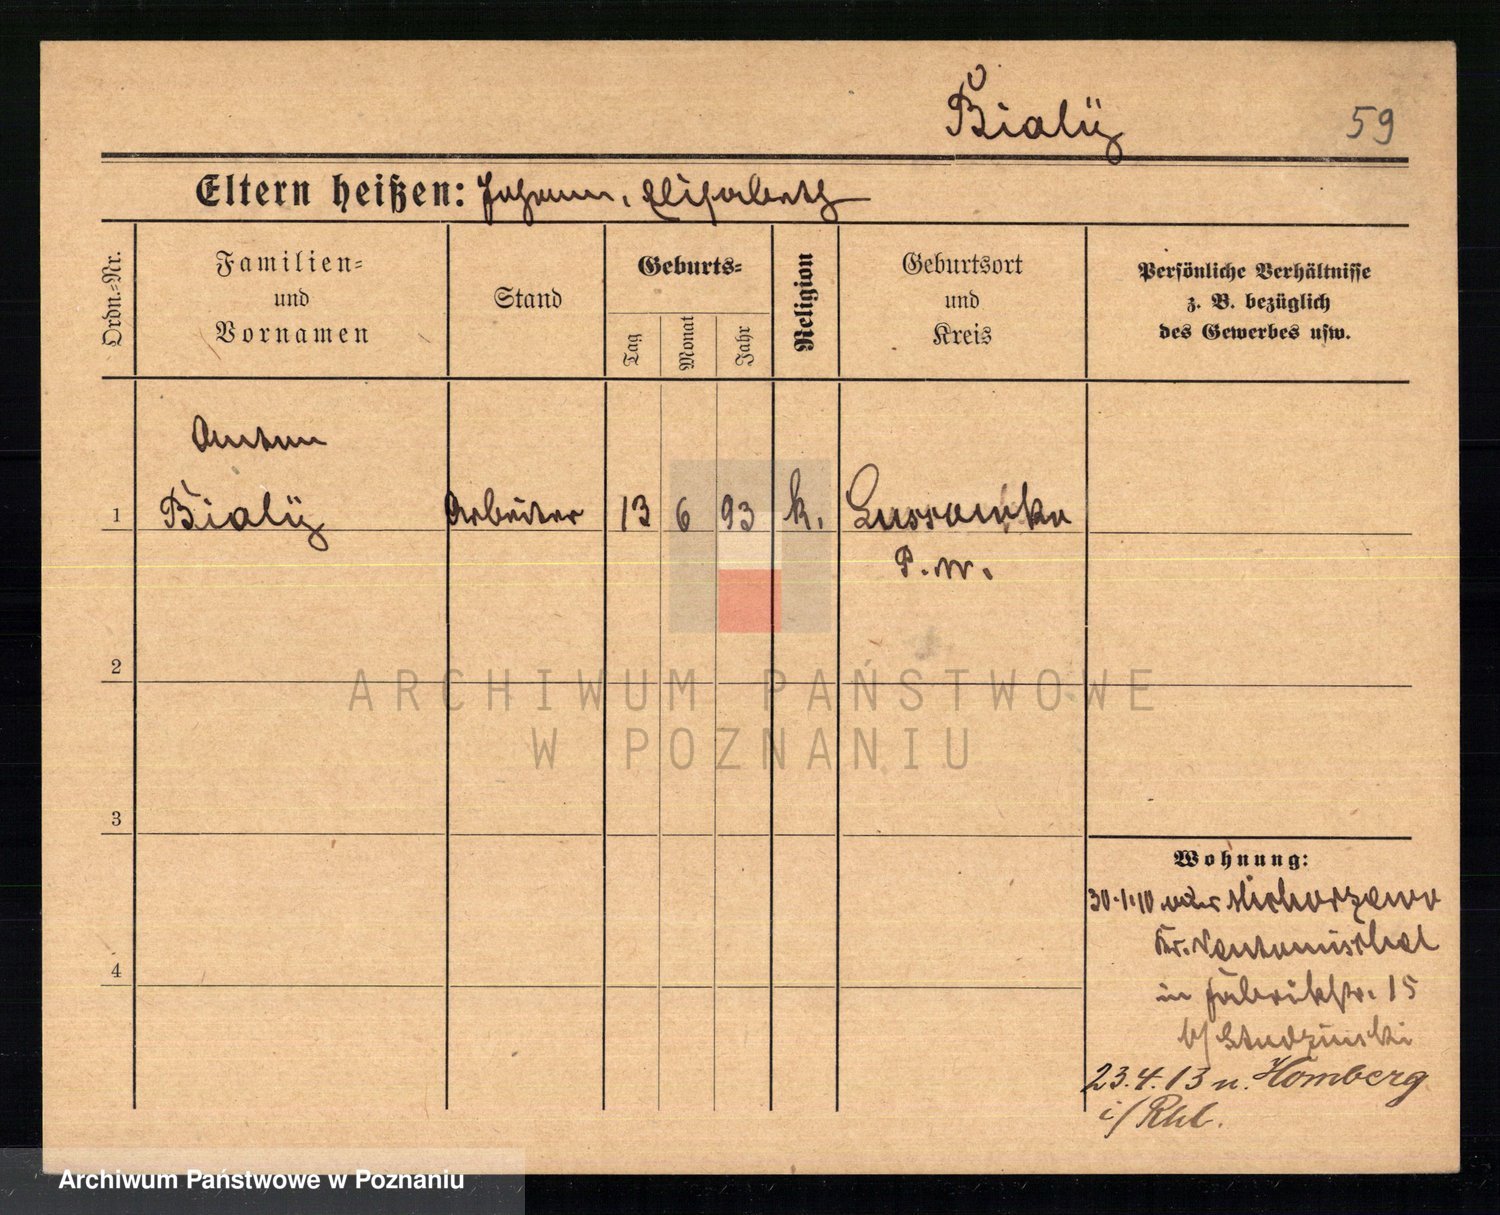 Bialÿ
59
Eltern heißen: Johann, Elisabeth
Ordn.=Nr.
Familien=
und
Vornamen
Stand
Geburts=
Tag
Monat
Jahr
Religion
Geburtsort
und
Kreis
Persönliche Verhältnisse
z. B. bezüglich
des Gewerbes usw.
Anton
1 Bialÿ Arbeiter 13 6 93 k.
P. W.
2
3
4
Wohnung:
30.1.10
in Fabrikstr. 15
b/ Studzinski
23.4.13 n. Homberg
i/ Rhl.
ARCHIWUM PAŃSTWOWE
W POZNANIU
Archiwum Państwowe w Poznaniu